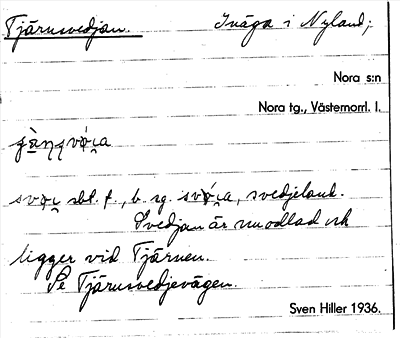 Tjärnsvedjan. Inäga i Nyland;
Nora s:n
Nora tg., Västernorrl. l.
sbt. f., b. sg. svedjeland.
Svedjan är nu odlad och
ligger vid Tjärnen.
Se Tjärnsvedjevägen.
Sven Hiller 1936.